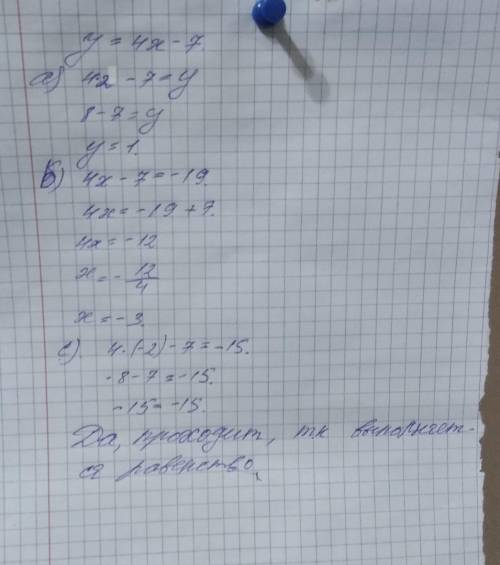 y = 4x - 7.
а) 42 - 7 = y
8 - 7 = y
y = 1.
б) 4x - 7 = -19.
4x = -19 + 7.
4x = -12
x = - 12/4
x = -3.
с) 4·(-2) - 7 = -15.
-8 - 7 = -15.
-15 = -15.
Да, проходит, тк выполняет-
ся равенство.